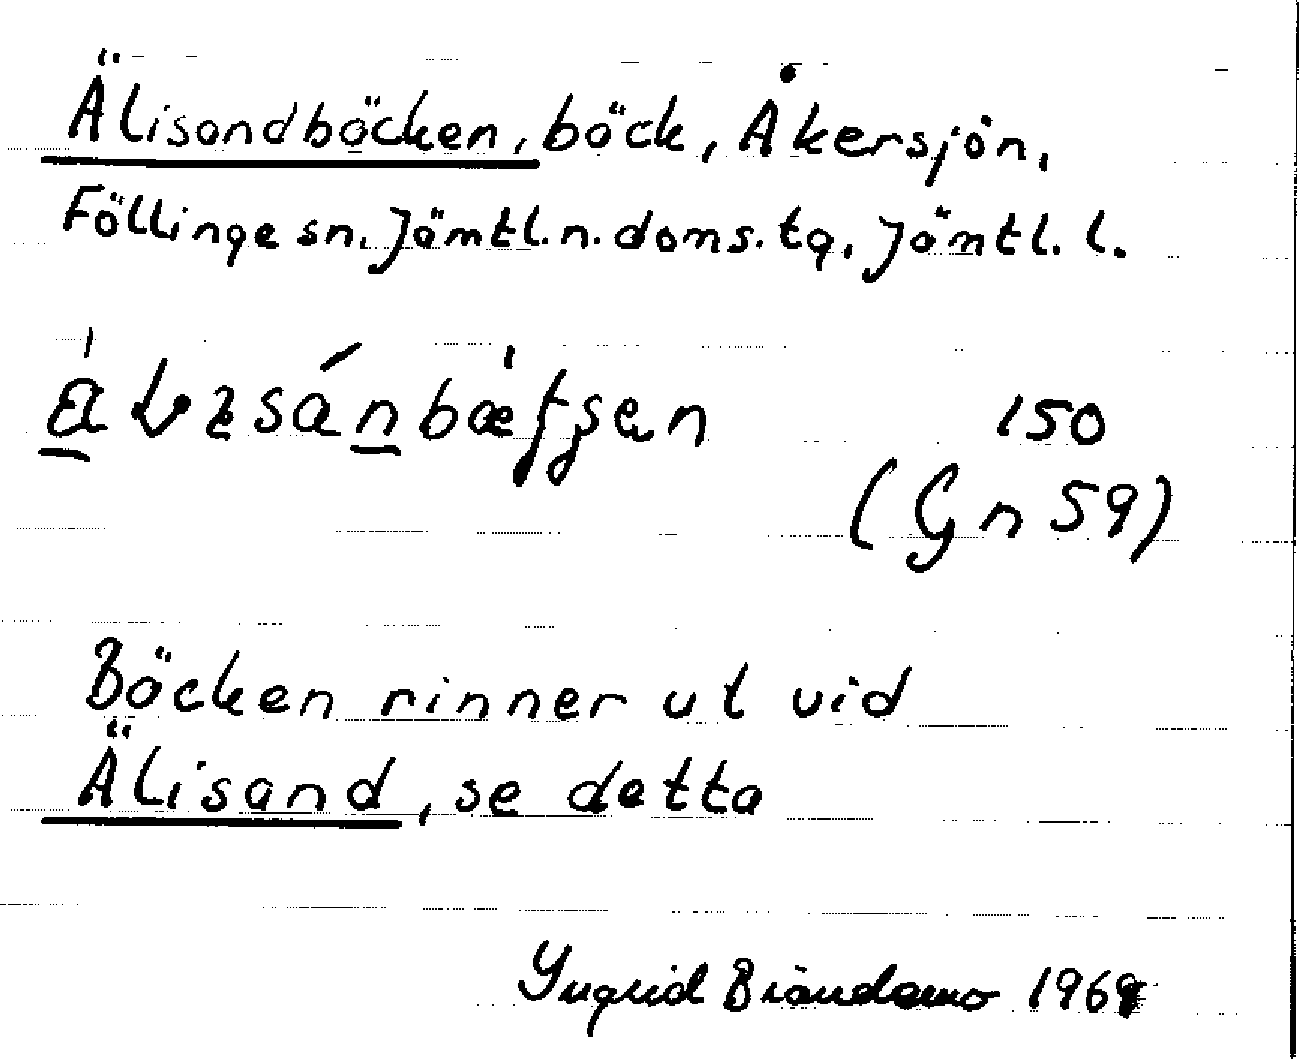 Älisandbäcken, bäck, Åkersjön,
Föllinge sn. Jämtl. n. doms. tg, Jämtl. l.
150
(Gn 59)
Bäcken rinner ut vid
Älisand, se detta
Yngrid Brändamo